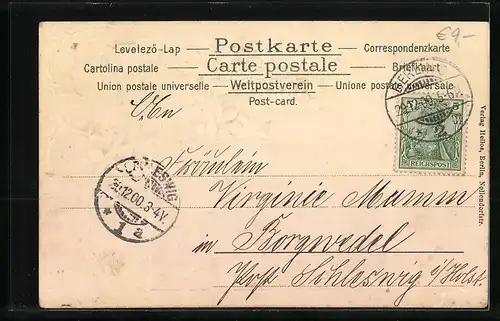 €9,-
Levelező-Lap — Postkarte — Correspondenzkarte
Cartolina postale — Carte postale — Briefkaart
Union postale universelle — Weltpostverein — Unione postale universale
Post-card.
An
Fräulein
Virginie Mamm
in Borgwedel
Post Schleswig i/Holst.
SCHLESWIG
12.00.3-4V.
* 1 a
5-6
REICHSPOST
Verlag Helios, Berlin, Nollendorfstr.